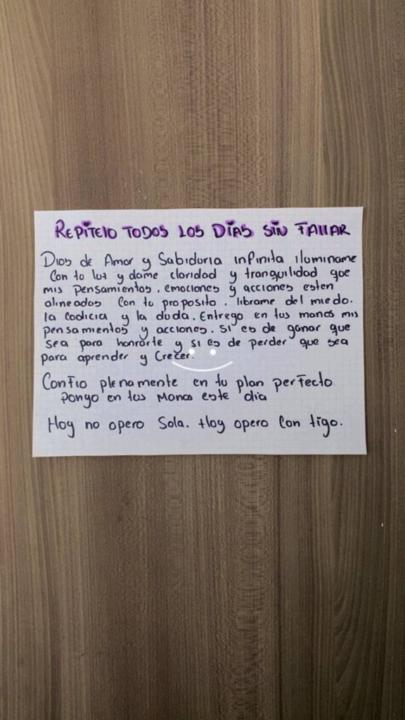 REPíTELO TODOS LOS DíAS SIN FALLAR
Dios de Amor y Sabiduria infinita iluminame
Con tu luz y dame claridad y tranquilidad que
mis pensamientos. emociones y acciones esten
alineados Con tu proposito. librame del miedo.
la Codicia y la duda. Entrego en tus manos mis
pensamientos y acciones. Si es de ganar que
sea para honrarte y si es de perder que sea
para aprender y Crecer.
Confio plenamente en tu plan perfecto
Pongo en tus Manos este dia
Hoy no opero Sola. Hoy opero Con tigo.